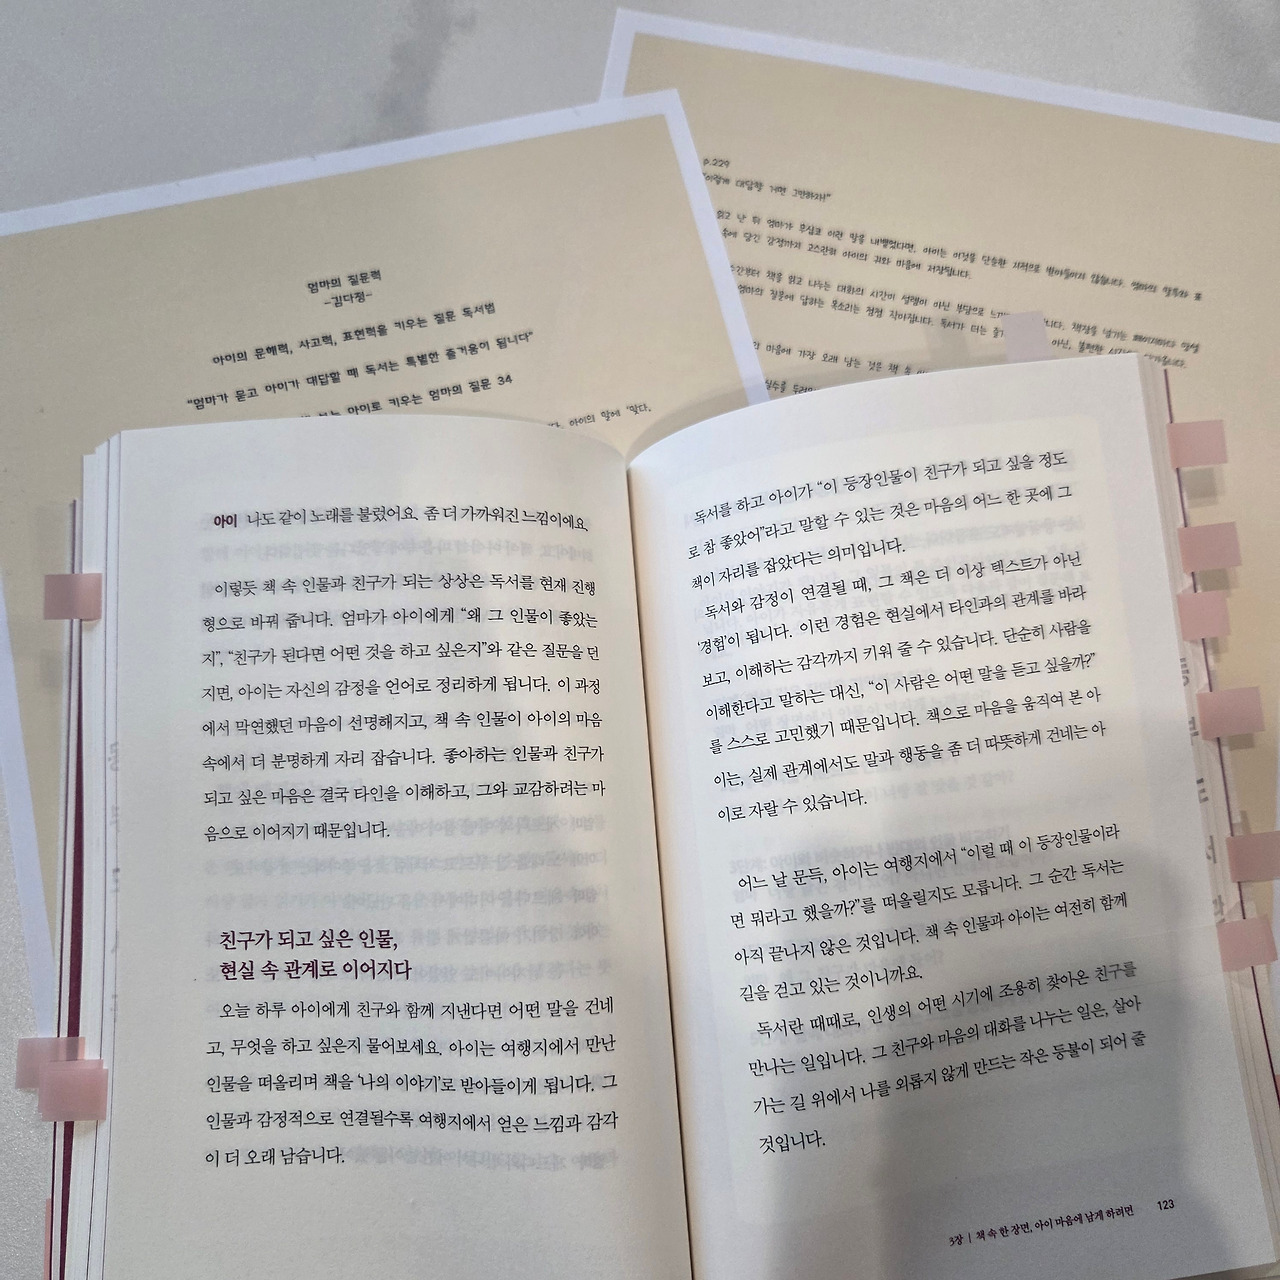 엄마의 질문력
-김다정-
아이의 문해력, 사고력, 표현력을 키우는 질문 독서법
"엄마가 묻고 아이가 대답할 때 독서는 특별한 즐거움이 됩니다"
아이로 키우는 엄마의 질문 34
아이의 말에 '맞다,
p.229
"이렇게 대답할 거면 그만하자!"
읽고 난 뒤 엄마가 무심코 이런 말을 내뱉었다면, 아이는 이것을 단순한 지적으로 받아들이지 않습니다. 엄마의 말투와 표
속에 담긴 감정까지 고스란히 아이의 귀와 마음에 저장됩니다.
순간부터 책을 읽고 나누는 대화의 시간이 설렘이 아닌 부담으로 책장을 넘기는 페이지마다
엄마의 질문에 답하는 목소리는 점점 작아집니다. 독서가 더는 아닌, 불편한
마음에 가장 오래 남는 것은 책 속
아이 나도 같이 노래를 불렀어요. 좀 더 가까워진 느낌이에요.
이렇듯 책 속 인물과 친구가 되는 상상은 독서를 현재 진행
형으로 바꿔 줍니다. 엄마가 아이에게 “왜 그 인물이 좋았는
지”, “친구가 된다면 어떤 것을 하고 싶은지”와 같은 질문을 던
지면, 아이는 자신의 감정을 언어로 정리하게 됩니다. 이 과정
에서 막연했던 마음이 선명해지고, 책 속 인물이 아이의 마음
속에서 더 분명하게 자리 잡습니다. 좋아하는 인물과 친구가
되고 싶은 마음은 결국 타인을 이해하고, 그와 교감하려는 마
음으로 이어지기 때문입니다.
친구가 되고 싶은 인물,
현실 속 관계로 이어지다
오늘 하루 아이에게 친구와 함께 지낸다면 어떤 말을 건네
고, 무엇을 하고 싶은지 물어보세요. 아이는 여행지에서 만난
인물을 떠올리며 책을 ‘나의 이야기’로 받아들이게 됩니다. 그
인물과 감정적으로 연결될수록 여행지에서 얻은 느낌과 감각
이 더 오래 남습니다.
독서를 하고 아이가 “이 등장인물이 친구가 되고 싶을 정도
로 참 좋았어”라고 말할 수 있는 것은 마음의 어느 한 곳에 그
책이 자리를 잡았다는 의미입니다.
독서와 감정이 연결될 때, 그 책은 더 이상 텍스트가 아닌
‘경험’이 됩니다. 이런 경험은 현실에서 타인과의 관계를 바라
보고, 이해하는 감각까지 키워 줄 수 있습니다. 단순히 사람을
이해한다고 말하는 대신, “이 사람은 어떤 말을 듣고 싶을까?”
를 스스로 고민했기 때문입니다. 책으로 마음을 움직여 본 아
이는, 실제 관계에서도 말과 행동을 좀 더 따뜻하게 건네는 아
이로 자랄 수 있습니다.
어느 날 문득, 아이는 여행지에서 “이럴 때 이 등장인물이라
면 뭐라고 했을까?”를 떠올릴지도 모릅니다. 그 순간 독서는
아직 끝나지 않은 것입니다. 책 속 인물과 아이는 여전히 함께
길을 걷고 있는 것이니까요.
독서란 때때로, 인생의 어떤 시기에 조용히 찾아온 친구를
만나는 일입니다. 그 친구와 마음의 대화를 나누는 일은, 살아
가는 길 위에서 나를 외롭지 않게 만드는 작은 등불이 되어 줄
것입니다.
3장 | 책 속 한 장면, 아이 마음에 남게 하려면 123